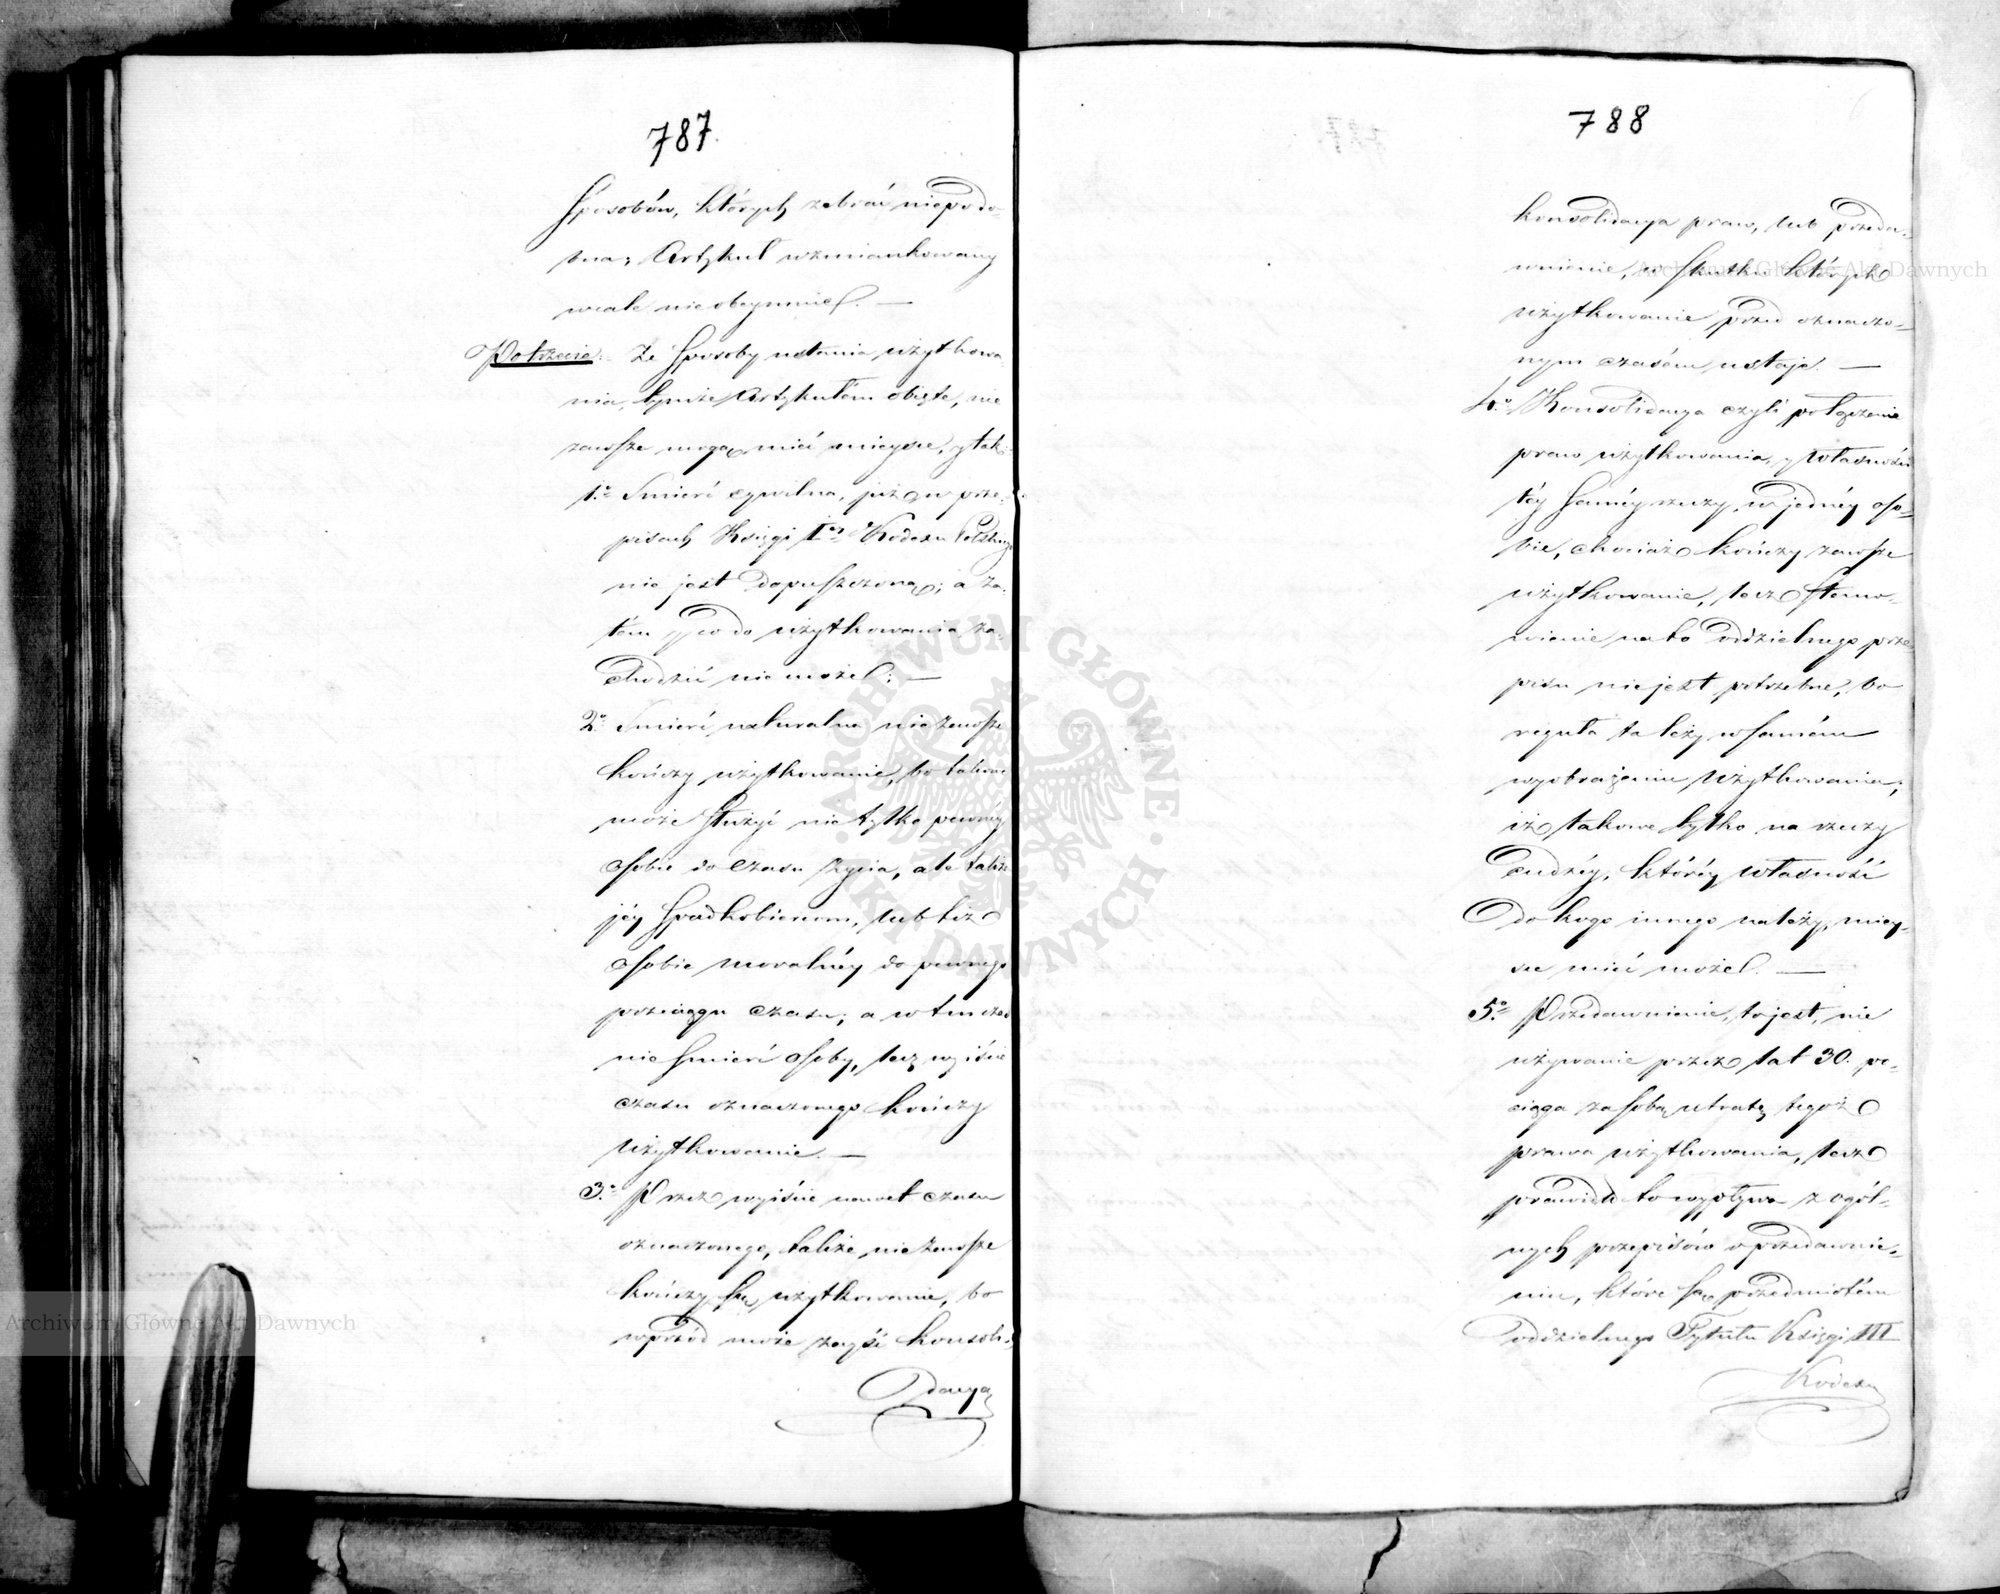 787.
sposobów, których zebrać niepodo-
bna, Artykuł wzmiankowany
wcale nieobeymuie. —
Potrzecie. Ze sposoby ustania użytkowa-
nia, tymże Artykułem obięte, nie
zawsze mogą mieć mieysce, y tak:
1o Smierć cywilna, już w prze-
pisach Księgi Iéj Kodexu Polskiego
nie jest dopuszczoną; a za-
tem y co do użytkowania za-
chodzić nie może: —
2o Smierć naturalna nie zawsze
kończy użytkowanie, bo takowe
może służyć nie tylko pewnéy
osobie do czasu życia, ale także
jéy spadkobiercom, lub też
osobie moralnéy do pewnego
przeciągu czasu; a w ten czas
nie smierć osoby, lecz wyiście
czasu oznaczonego kończy
użytkowanie. —
3o Przez wyiście nawet czasu
oznaczonego, także nie zawsze
kończy się użytkowanie, bo
wprzód może zayść konsoli-
dacya
788
konsolidacya praw, lub przeda-
wnienie, w skutku których
użytkowanie przed oznaczo-
nym czasem ustaje. —
4o Konsolidacya czyli połączenie
praw użytkowania, y własności
téy saméy rzeczy, w jednéy oso-
bie, chociaż kończy zawsze
użytkowanie, lecz stano-
wienie na to oddzielnego prze-
pisu niejest potrzebne, bo
reguła ta leży w samém
wyobrażeniu użytkowania,
iż takowe tylko na rzeczy
cudzéy, któréy własność
do kogo innego należy, miey-
sce mieć może. —
5o Przedawnienie, to jest, nie
używanie przez lat 30. po-
ciąga za sobą utratę tegoż
prawa użytkowania, lecz
prawidło to wypływa z ogól-
nych przepisów o przedawnie-
niu, które są przedmiotem
oddzielnego Tytułu Księgi III
Kodexu
Archiwum Główne Akt Dawnych
Archiwum Główne Akt Dawnych
ARCHIWUM GŁÓWNE AKT DAWNYCH